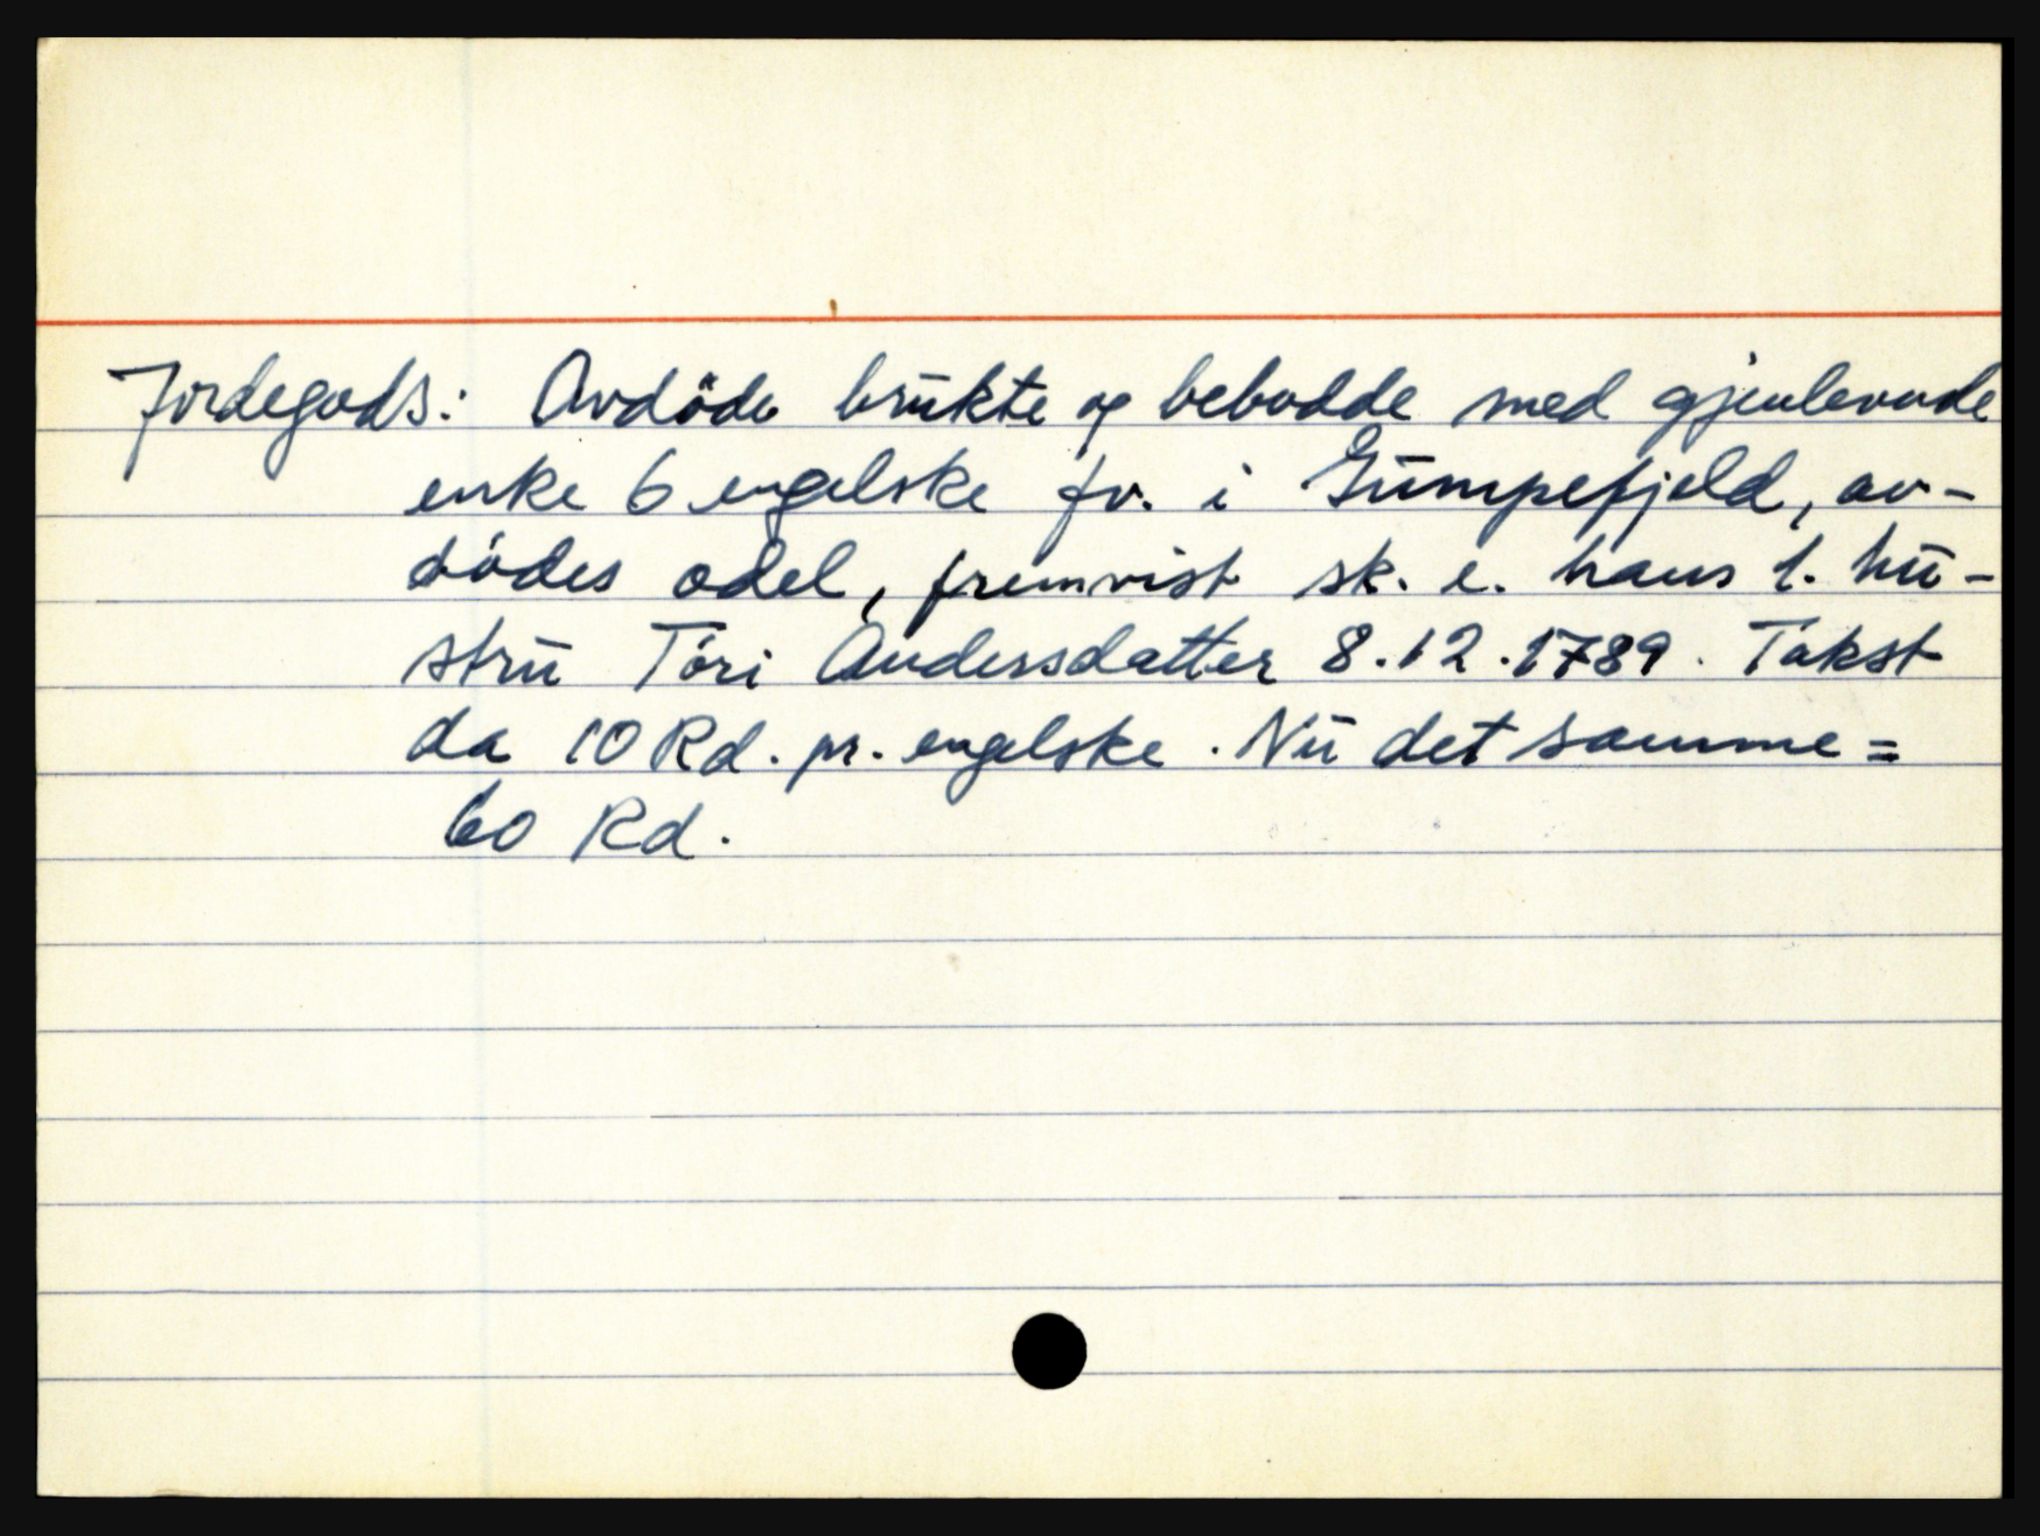 Jordegods: Avdöde brukte og bebodde med gjenlevende
enke 6 engelske fv. i Gumpefjeld, av-
dödes odel, fremvist sk. e. hans 1. hu-
stru Töri Andersdatter 8.12.1789. Takst
da 10 Rd. pr. engelske. Nu det samme =
60 Rd.